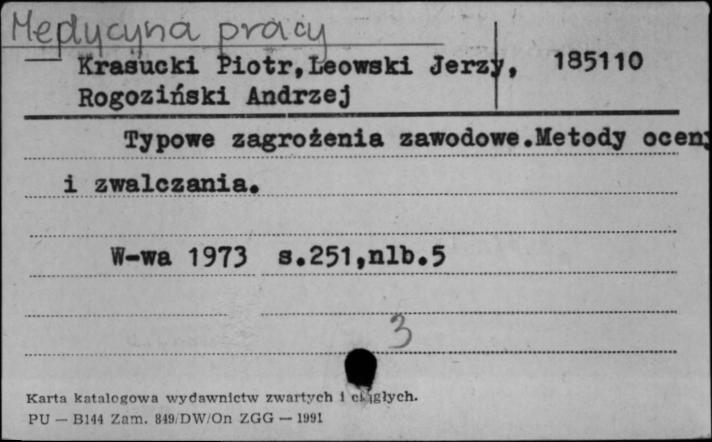 Medycyna pracy
Krasucki Piotr,Leowski Jerzy, 185110
Rogoziński Andrzej
Typowe zagrożenia zawodowe.Metody oceny
i zwalczania.
W-wa 1973 s.251,nlb.5
3
Karta katalogowa wydawnictw zwartych i ciągłych.
PU — B144 Zam. 849/DW/On ZGG — 1991